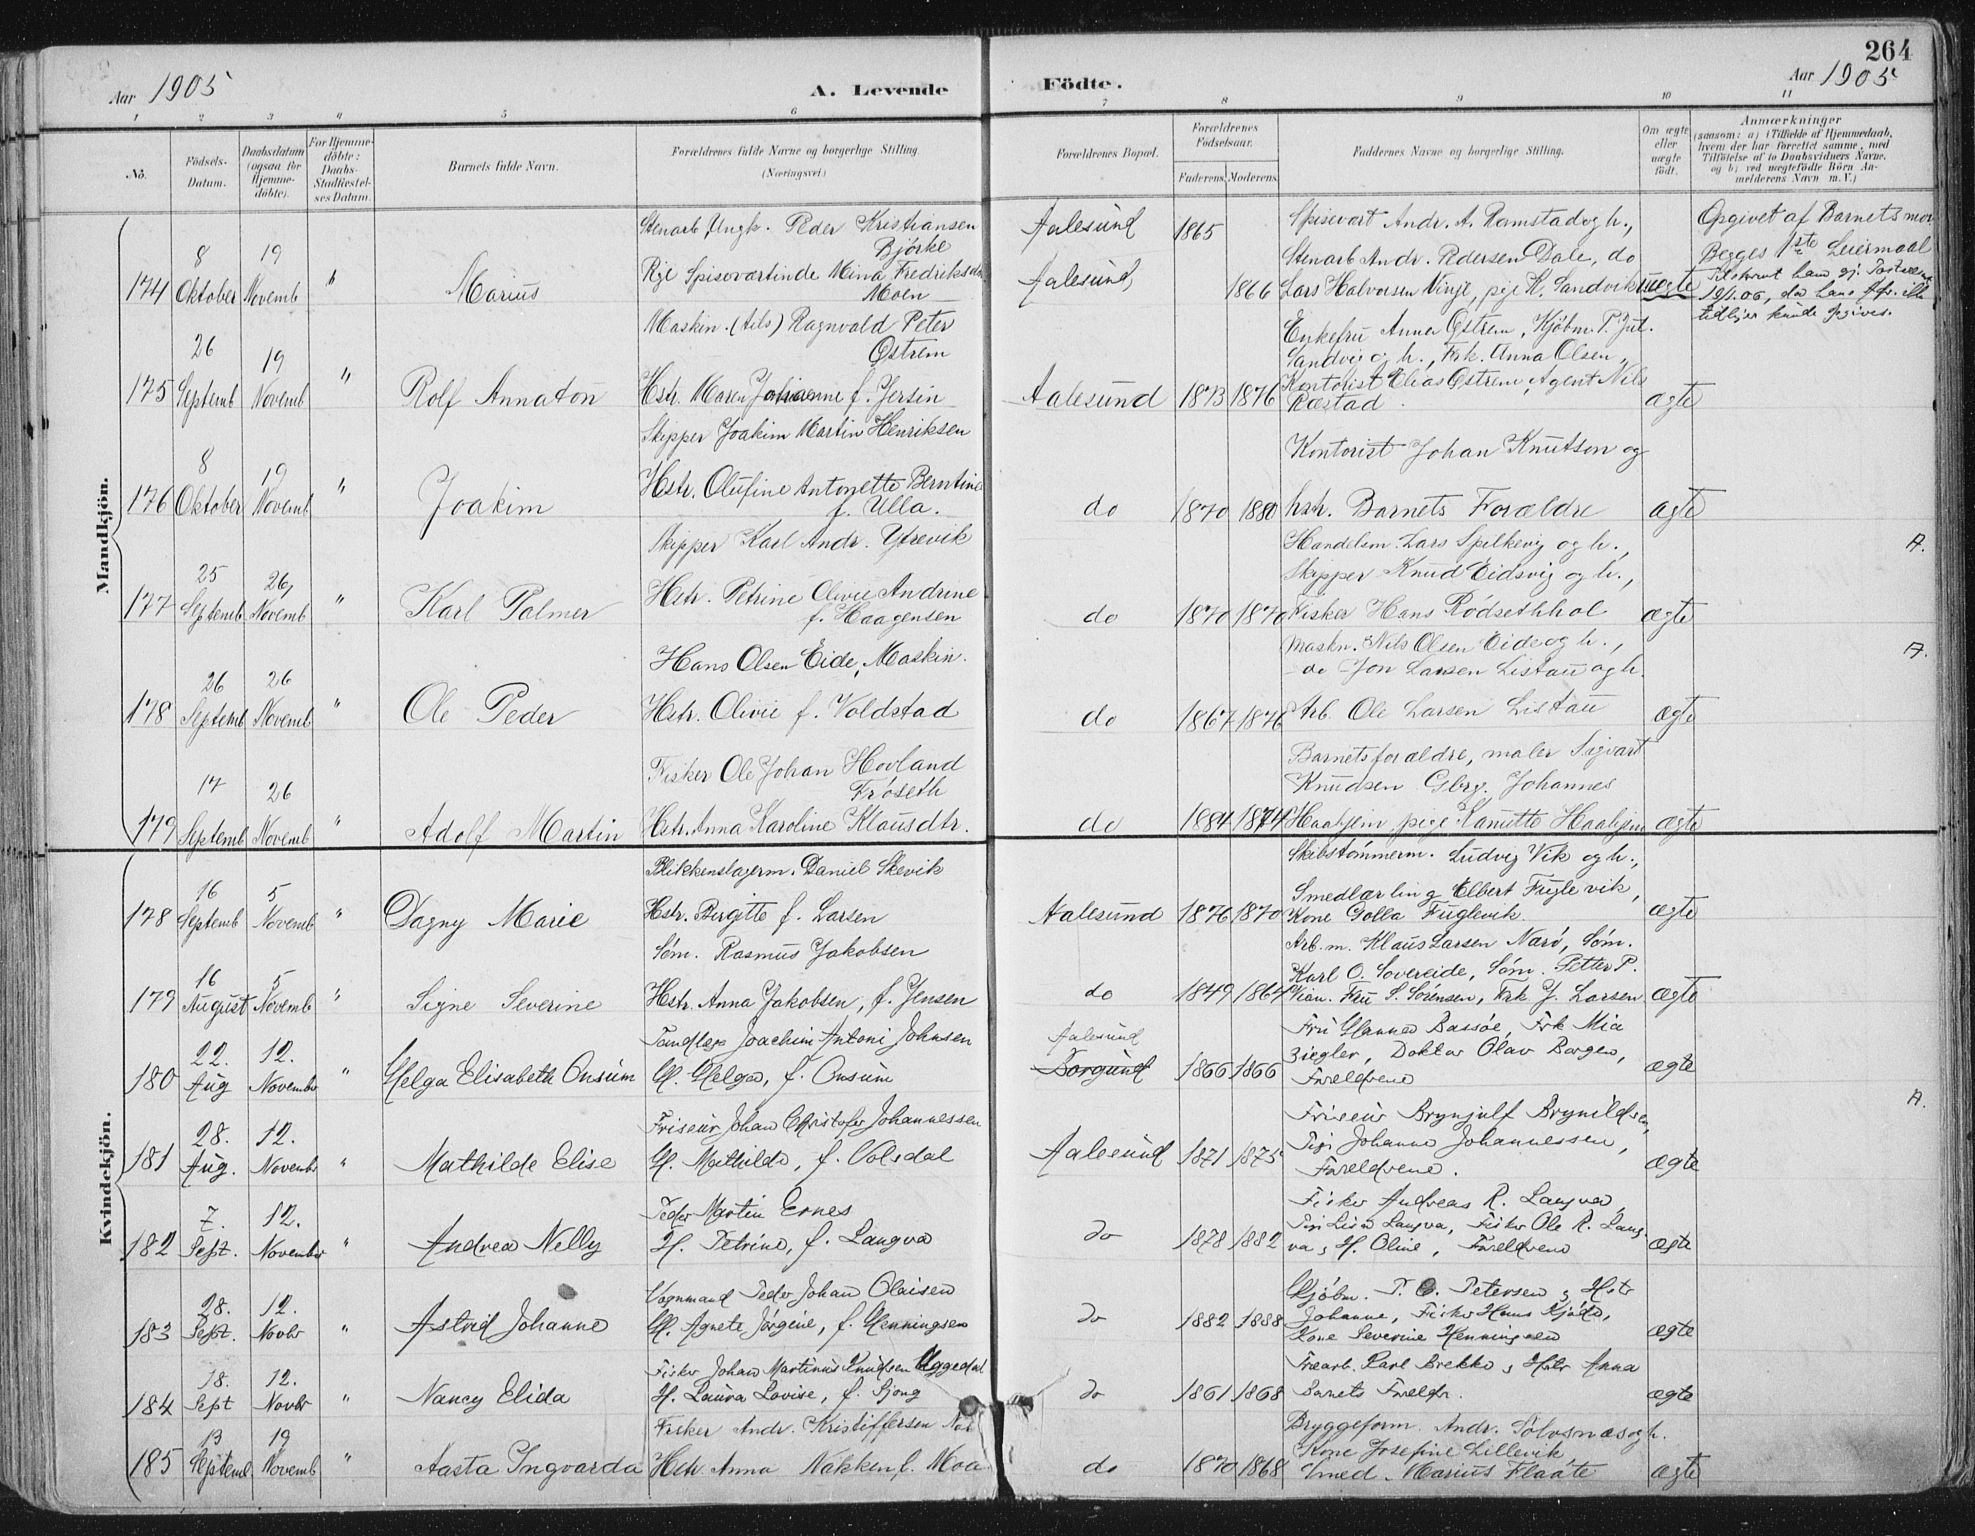 264
Aar 1905
A. Levende Födte.
Aar 1905
1 2 3 4 5 6 7 8 9 10 11
No. Födsels-Datum. Daabsdatum (ogsaa for Hjemme-döbte). For Hjemme-döbte: Daabs-Stadfæstel-ses Datum. Barnets fulde Navn. Forældrenes fulde Navne og borgerlige Stilling (Næringsvei) Forældrenes Bopæl. Forældrenes Födselsaar. Faderens. Moderens. Faddernes Navne og borgerlige Stilling. Om ægte eller uægte födt. Anmærkninger (saasom: a) i Tilfælde af Hjemmedaab, hvem der har forrettet samme, med Tilföielse af to Daabsvidners Navne, og b) ved uægtefödte Börn An-melderens Navn m. V.)
Mandkjön.
Stenarb. Ungk. Peder Kristiansen Aalesund 1865 Spisevært Andr. A. Ramstad og h., Opgivet af Barnets mor
8 19 Bjørke Stenarb Andr. Pedersen Dale, do Begges 1ste Leiermaal
174 Oktober Novemb " Marius Pige Spiseværtinde Mina Fredriksdtr Aalesund, 1866 Lars Halvorsen Vinje, pige K. Sandvik uægte
Moen
Maskin. (Aals) Ragnvald Peter Enkefru Anna Østrem, Kjøbm. P. Jul.
26 19 Østrem Sandvig og h., Frk. Anna Olsen,
175 Septemb Novemb " Rolf Annaton Hstr. Maren Johanne f. Jersin Aalesund 1873 1876 Kontorist Elias Østrem, Agent Nils ægte
Ræstad.
Skipper Joakim Martin Henriksen Kontorist Johan Knutson og
8 19
176 Oktober Novemb " Joakim Hstr. Olufine Antonette Berntine do 1870 1880 hstr. Barnets Forældre ægte
f. Ulla.
Skipper Karl Andr. Ytrevik Handelsm. Lars Spilkevig og h., A.
25 26, Skipper Knud Eidsvig og h.,
177 Septemb Novemb " Karl Palmer Hstr. Petrine Olivie Andrine do 1870 1870 Fisker Hans Rødsethhol ægte
f. Haagensen
Hans Olsen Eide, Maskin. Maskn. Nils Olsen Eide og h., A.
26 26 do Jon Larsen Listau og h.
178 Septemb Novemb " Ole Peder Hstr. Olivie f. Voldstad do 1867 1876 Arb. Ole Larsen Listau ægte
Fisker Ole Johan Hovland Barnets forældre, maler Sigvart
17 26 Krøseth Knudsen Gbrg. Johannes
179 Septemb Novemb " Adolf Martin Hstr. Anna Karoline Klausdtr. do 1884 1874 Haahjem pige Kanutte Haahjem ægte
Kvindekjön.
Blikkenslagerm. Daniel Skevik Skibstømmerm. Ludvig Vik og h.,
16 5 Smedlærling Elbert Fuglevik,
178 Septemb Novemb " Dagny Marie Hstr. Bergitte f. Larsen Aalesund 1876 1870 Kone Golla Fuglevik. ægte
Søm. Rasmus Jakobsen Arb.m. Klaus Larsen Narø, Søm.
16 5 Karl O. Sovereide, Søm. Petter P.
179 August Novemb " Signe Severine Hstr. Anna Jakobsen, f. Jensen do 1849 1864 Fru S. Sørensen, Frk. J. Larsen ægte
Tandlæge Joachim Antoni Johnsen Aalesund Fru Hanna Bassøe, Frk Mia
22. 12. Ziegler, Doktor Olav Borgen,
180 Aug November " Helga Elisabeth Onsum H. Helga, f. Onsum Borgund 1866 1866 Foreldrene ægte
Friseur Johan Christofer Johannessen Friseur Brynjulf Brynildsen, A.
28. 12. Pige Johanne Johannessen,
181 Aug. Novembr " Mathilde Elise H. Mathilde, f. Volsdal Aalesund 1871 1875 Foreldrene. ægte
Peder Martin Ernes Fisker Andreas R. Langva,
7. 12. Pige Lisa Langva, Fisker Ole R. Lang-
182 Sept. November " Andrea Nelly H. Petrine, f. Langva do 1878 1882 va, H. Oline, Foreldrene ægte
Vognmand Peder Johan Olaisen Kjøbm. P. O. Petersen, Hstr
28. 12. Johanne, Fisker Hans Kjøde,
183 Sept. Novbr " Astrid Johanne H. Agnete Jørgine, f. Henningsen do 1882 1888 Kone Severine Henningsen ægte
Fisker Johan Martinus Knudsen Uggedal Træarb. Karl Brekke, Hstr Anna
18. 12.
184 Sept Novbr " Nancy Elida H. Laura Lovise, f. Sjong do 1861 1868 Barnets Foreldr. ægte
Fisker Andr. Kristiffersen Bryggeform. Andr. Sølvsnæs og h.
13 19 Kone Josefine Lillevik
185 Septemb Novemb " Aasta Ingvarda Hstr Anna Nakken f. Moa do 1870 1868 Smed. Marius Flaate ægte